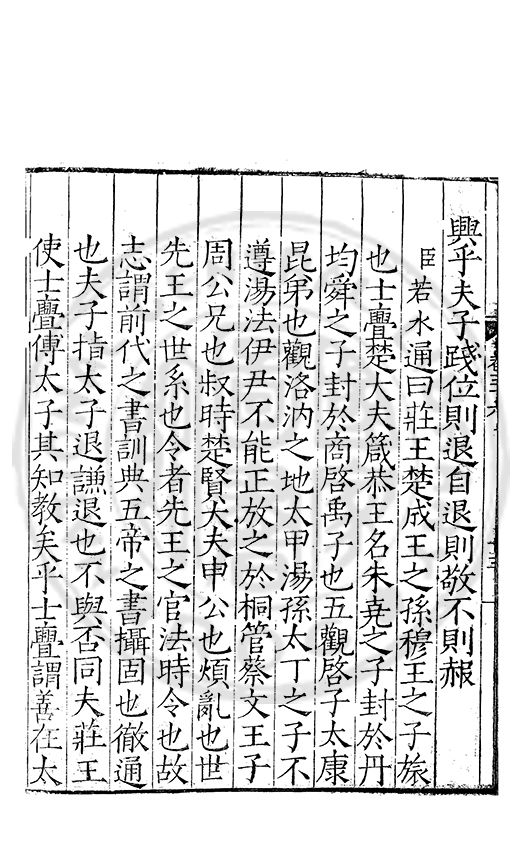 興乎夫子踐位則退自退則敬不則赧
臣若水通曰莊王楚成王之孫穆王之子旅
也士亹楚大夫箴恭王名朱堯之子封於丹
均舜之子封於商啓禹子也五觀啓子太康
昆弟也觀洛汭之地太甲湯孫太丁之子不
遵湯法伊尹不能正放之於桐管蔡文王子
周公兄也叔時楚賢大夫申公也煩亂也世
先王之世系也令者先王之官法時令也故
志謂前代之書訓典五帝之書攝固也徹通
也夫子指太子退謙退也不與否同夫莊王
使士亹傅太子其知教矣乎士亹謂善在太